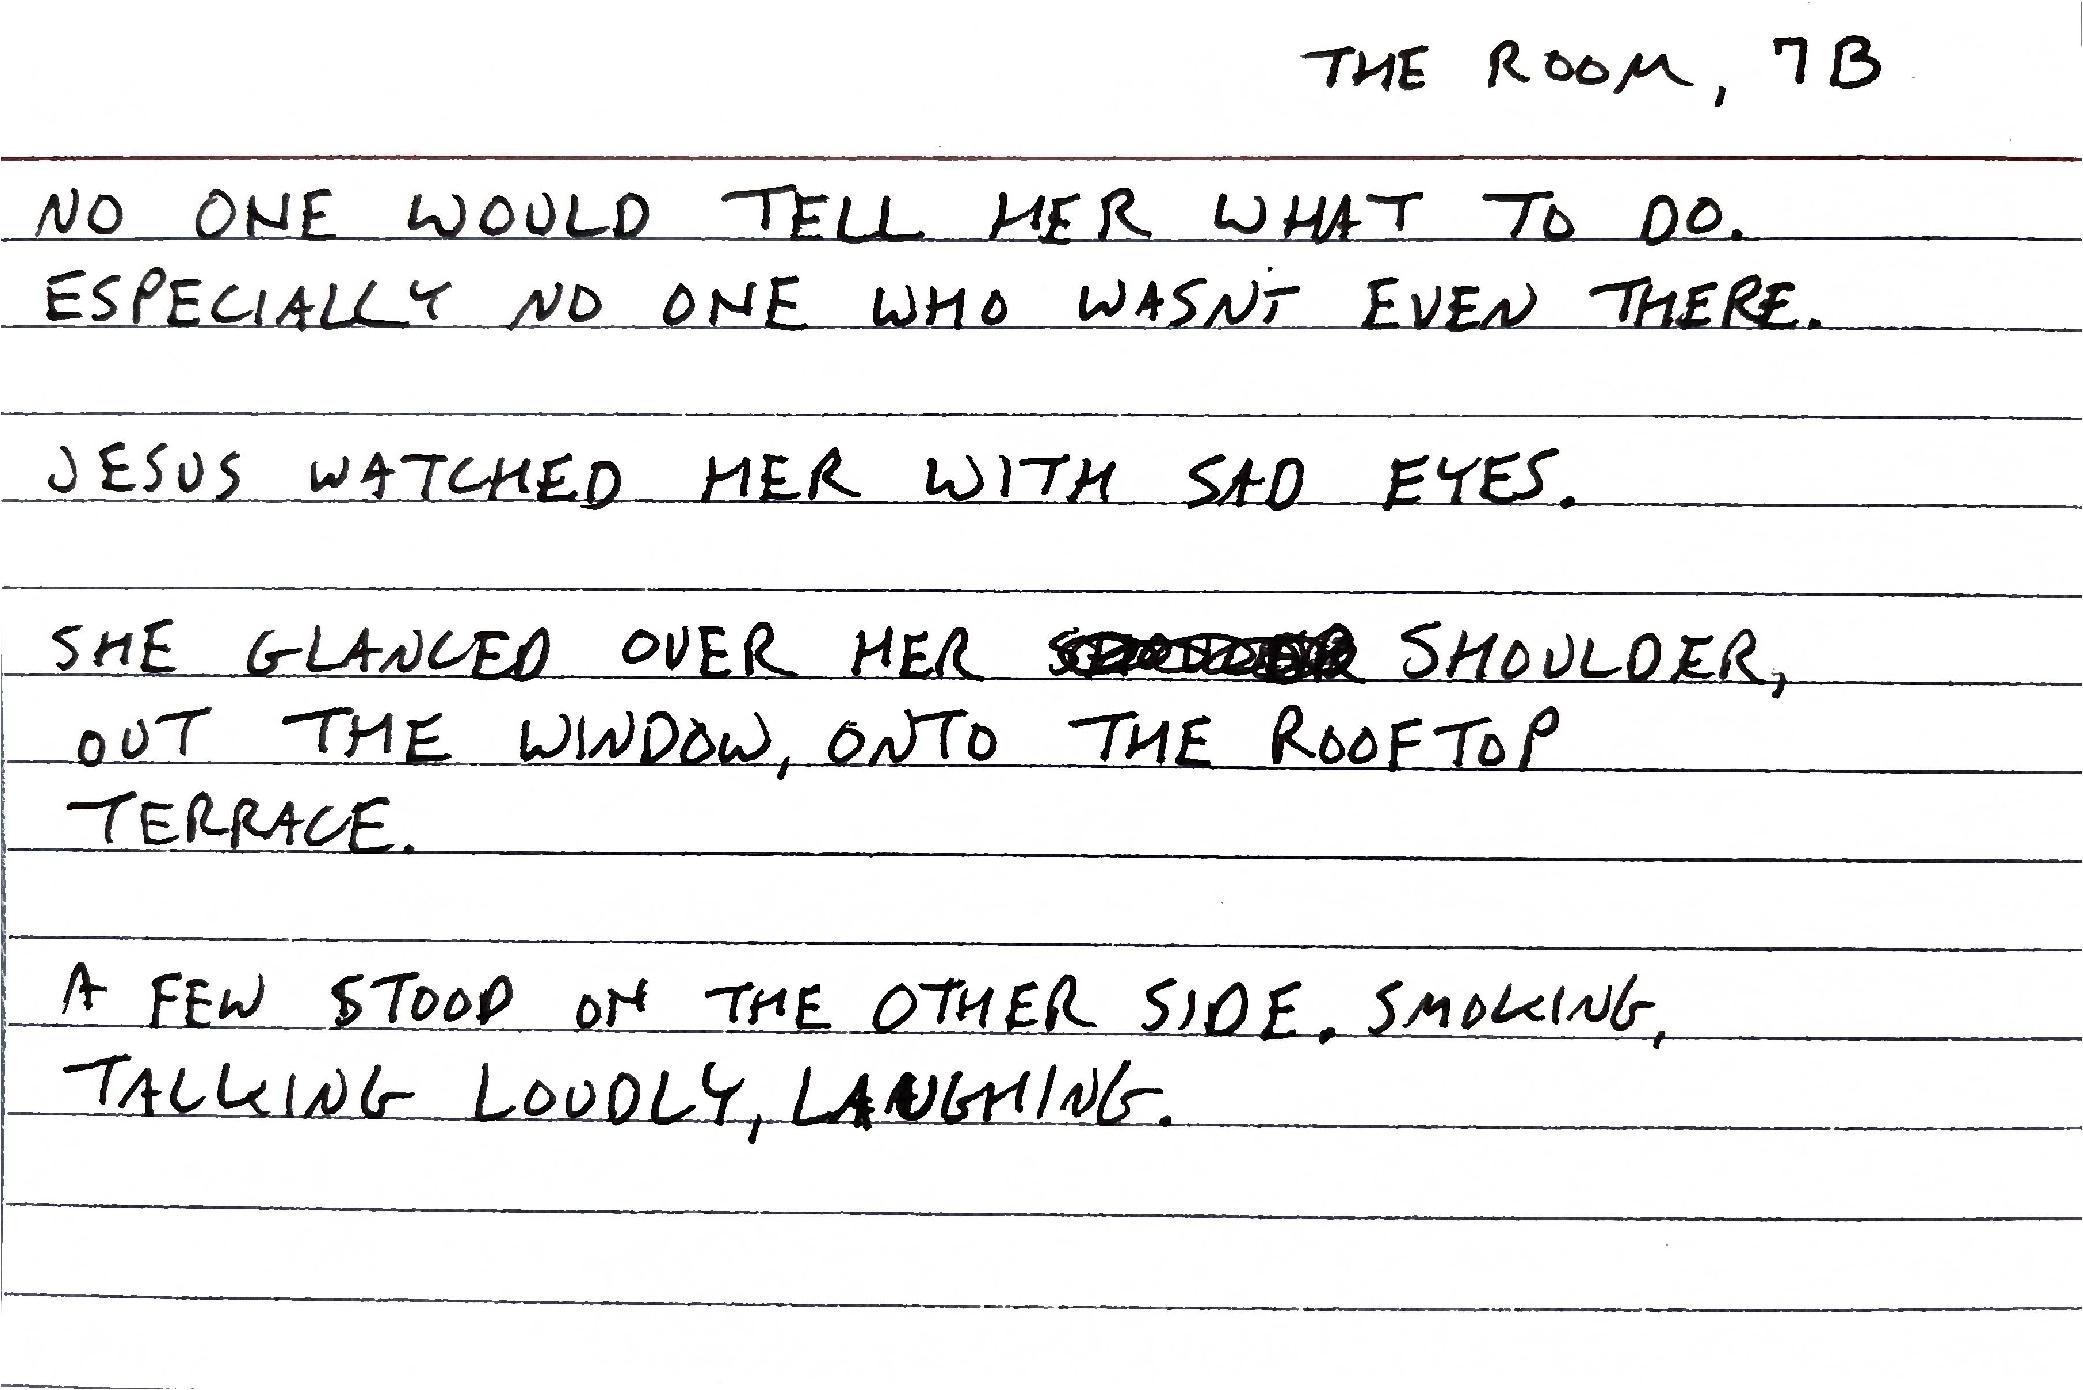 THE ROOM, 7B
NO ONE WOULD TELL HER WHAT TO DO.
ESPECIALLY NO ONE WHO WASN'T EVEN THERE.
JESUS WATCHED HER WITH SAD EYES.
SHE GLANCED OVER HER SHOULDER,
OUT THE WINDOW, ONTO THE ROOFTOP
TERRACE.
A FEW STOOD ON THE OTHER SIDE. SMOKING,
TALKING LOUDLY, LAUGHING.